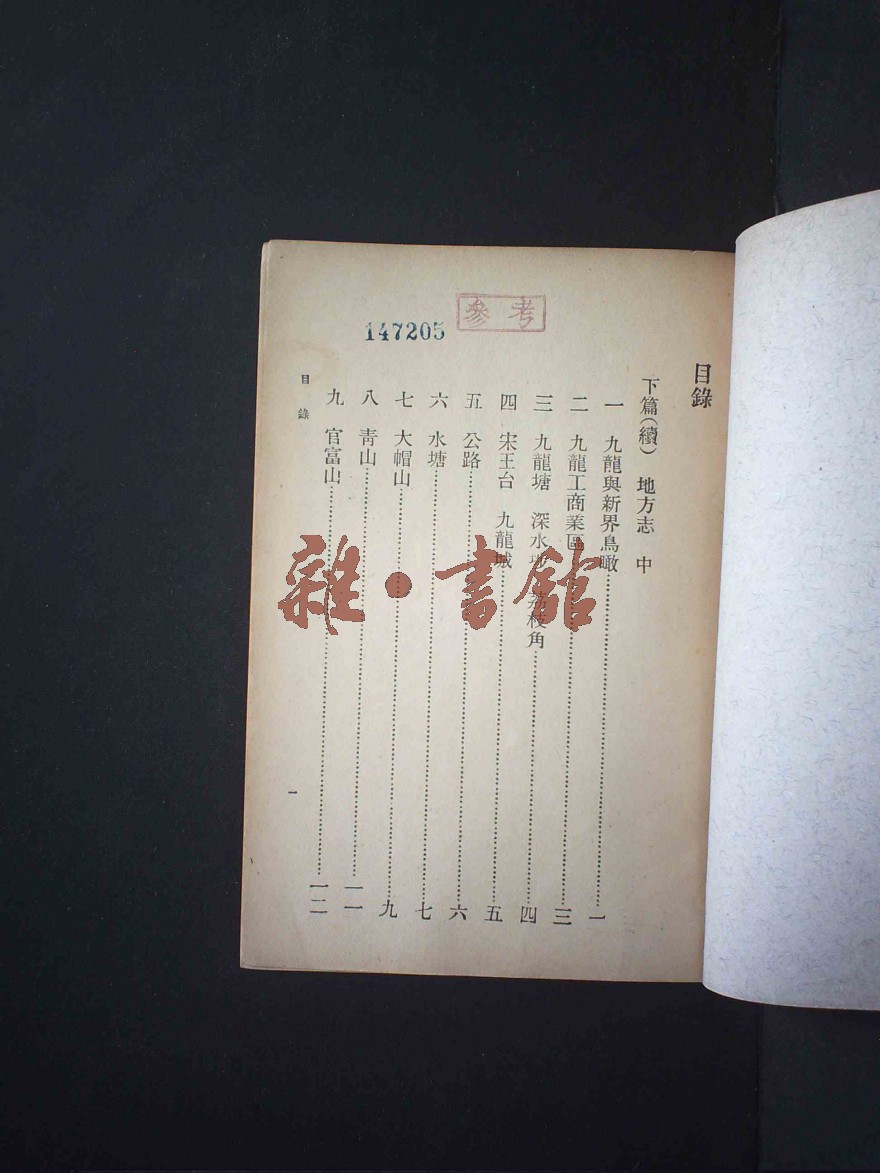 參考
147205
目錄
下篇(續) 地方志 中
一 九龍與新界鳥瞰……一
二 九龍工商業區……三
三 九龍塘 深水埗 荔枝角……四
四 宋王台 九龍城……五
五 公路……六
六 水塘……七
七 大帽山……九
八 青山……一一
九 官富山……一二
目錄
一
雜·書館